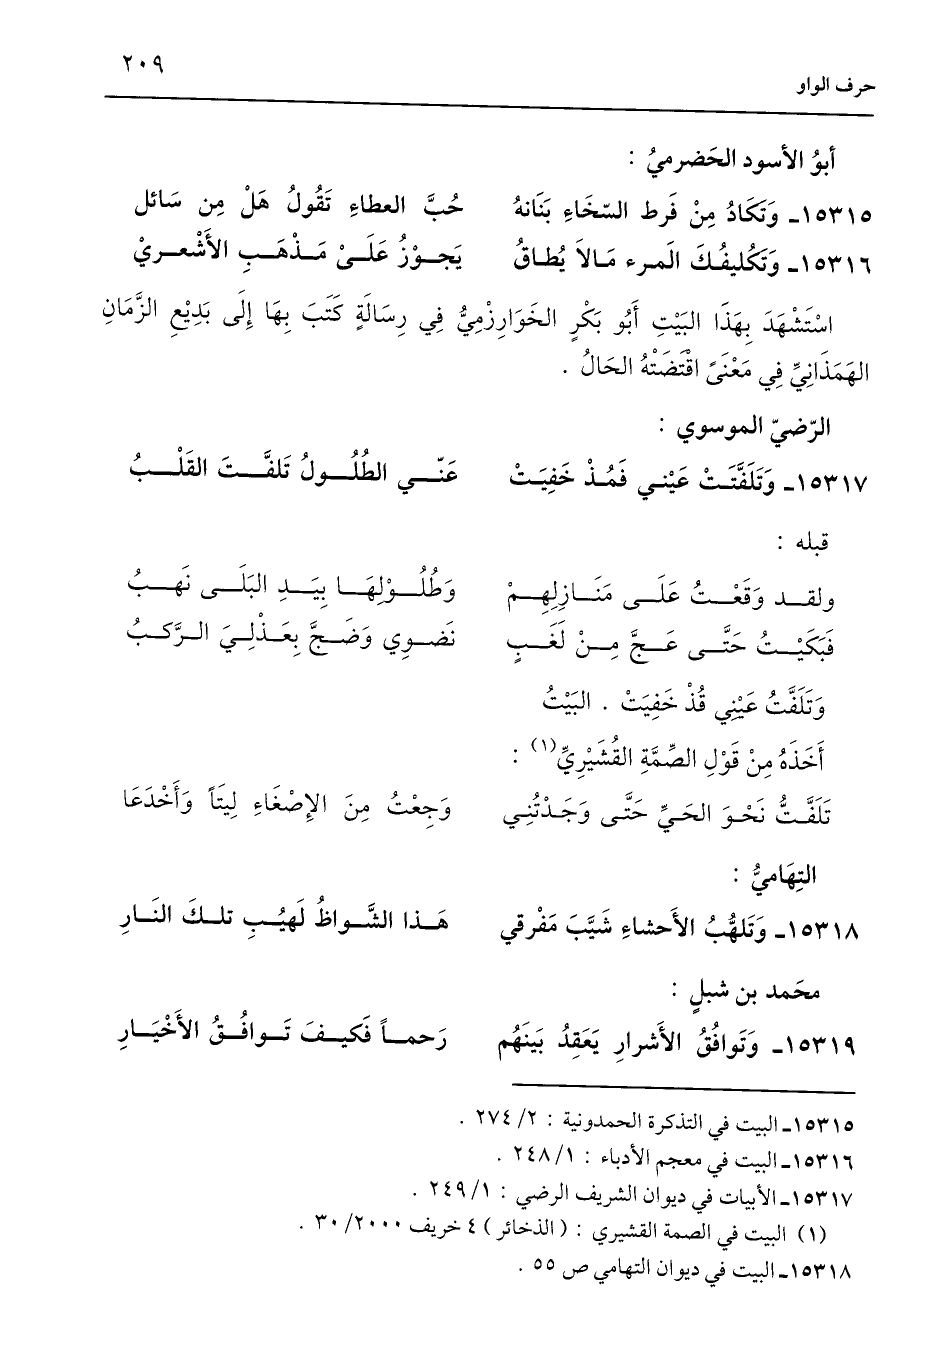 ٢٠٩
حرف الواو
أبوُ الأسود الحَضرميُ :
١٥٣١٥ـ وَتَكَادُ مِنْ فَرط السّخَاءِ بَنَانهُ حُبَّ العطاءِ تَقُولُ هَلْ مِن سَائل
١٥٣١٦ـ وَتَكُليفُكَ المرء مَالاَ يُطاقُ يَجـوْزُ عَلَىْ مَـذْهَـبِ الأَشْعـريْ
اسْتَشْهَدَ بِهَذَا البَيْتِ أَبُو بَكْرٍ الخَوَارِزْمِيُّ فِي رِسَالَةٍ كَتَبَ بِهَا إِلَى بَدِيْعِ الزَّمَانِ
الهَمَذَانِيِّ فِي مَعْنَىً اقْتَضَتْهُ الحَالُ .
الرّضيّ الموسوي :
١٥٣١٧ـ وَتَلَفَّتَتْ عَيْني فَمُذْ خَفِيَتْ عَنّـي الطُلُـولُ تَلفَّـتَ القَلْـبُ
قبله :
ولقـد وَقَعْـتُ عَلَـى مَنَـازِلِهِـمْ وَطُلُـوْلِهَـا بِيَـدِ البَلَـى نَهـبُ
فَبَكَيْـتُ حَتَّـى عَـجَّ مِـنْ لَغَبٍ نَضوِي وَضَجَّ بِعَذْلِيَ الـرَّكبُ
وَتَلَفَّتُ عَيْنِي قُذْ خَفِيَتْ . البَيْتُ
أَخَذَهُ مِنْ قَوْلِ الصِّمَّةِ القُشَيْرِيِّ(١) :
تَلَفَّتُّ نَحْوَ الحَيِّ حَتَّى وَجَدْتُنِي وَجِعْتُ مِنَ الإِصْغَاءِ لِيتَاً وَأَخْدَعَا
التِهَاميُّ :
١٥٣١٨ـ وَتَلهُّبُ الأَحشاءِ شَيَّبَ مَفْرقي هَـذا الشَّـواظُ لَهيُـبِ تلـكَ النَـارِ
محَمد بن شبلٍ :
١٥٣١٩ـ وَتَوافُقُ الأشرارِ يَعَقِدُ بَينَهُم رَحمـاً فَكيـفَ تَـوافُـقُ الأَخْيَـارِ
١٥٣١٥ـ البيت في التذكرة الحمدونية : ٢/ ٢٧٤ .
١٥٣١٦ـ البيت في معجم الأدباء : ١/ ٢٤٨ .
١٥٣١٧ـ الأبيات في ديوان الشريف الرضي : ١/ ٢٤٩ .
(١) البيت في الصمة القشيري : ( الذخائر ) ٤ خريف ٢٠٠٠/ ٣٠ .
١٥٣١٨ـ البيت في ديوان التهامي ص ٥٥ .